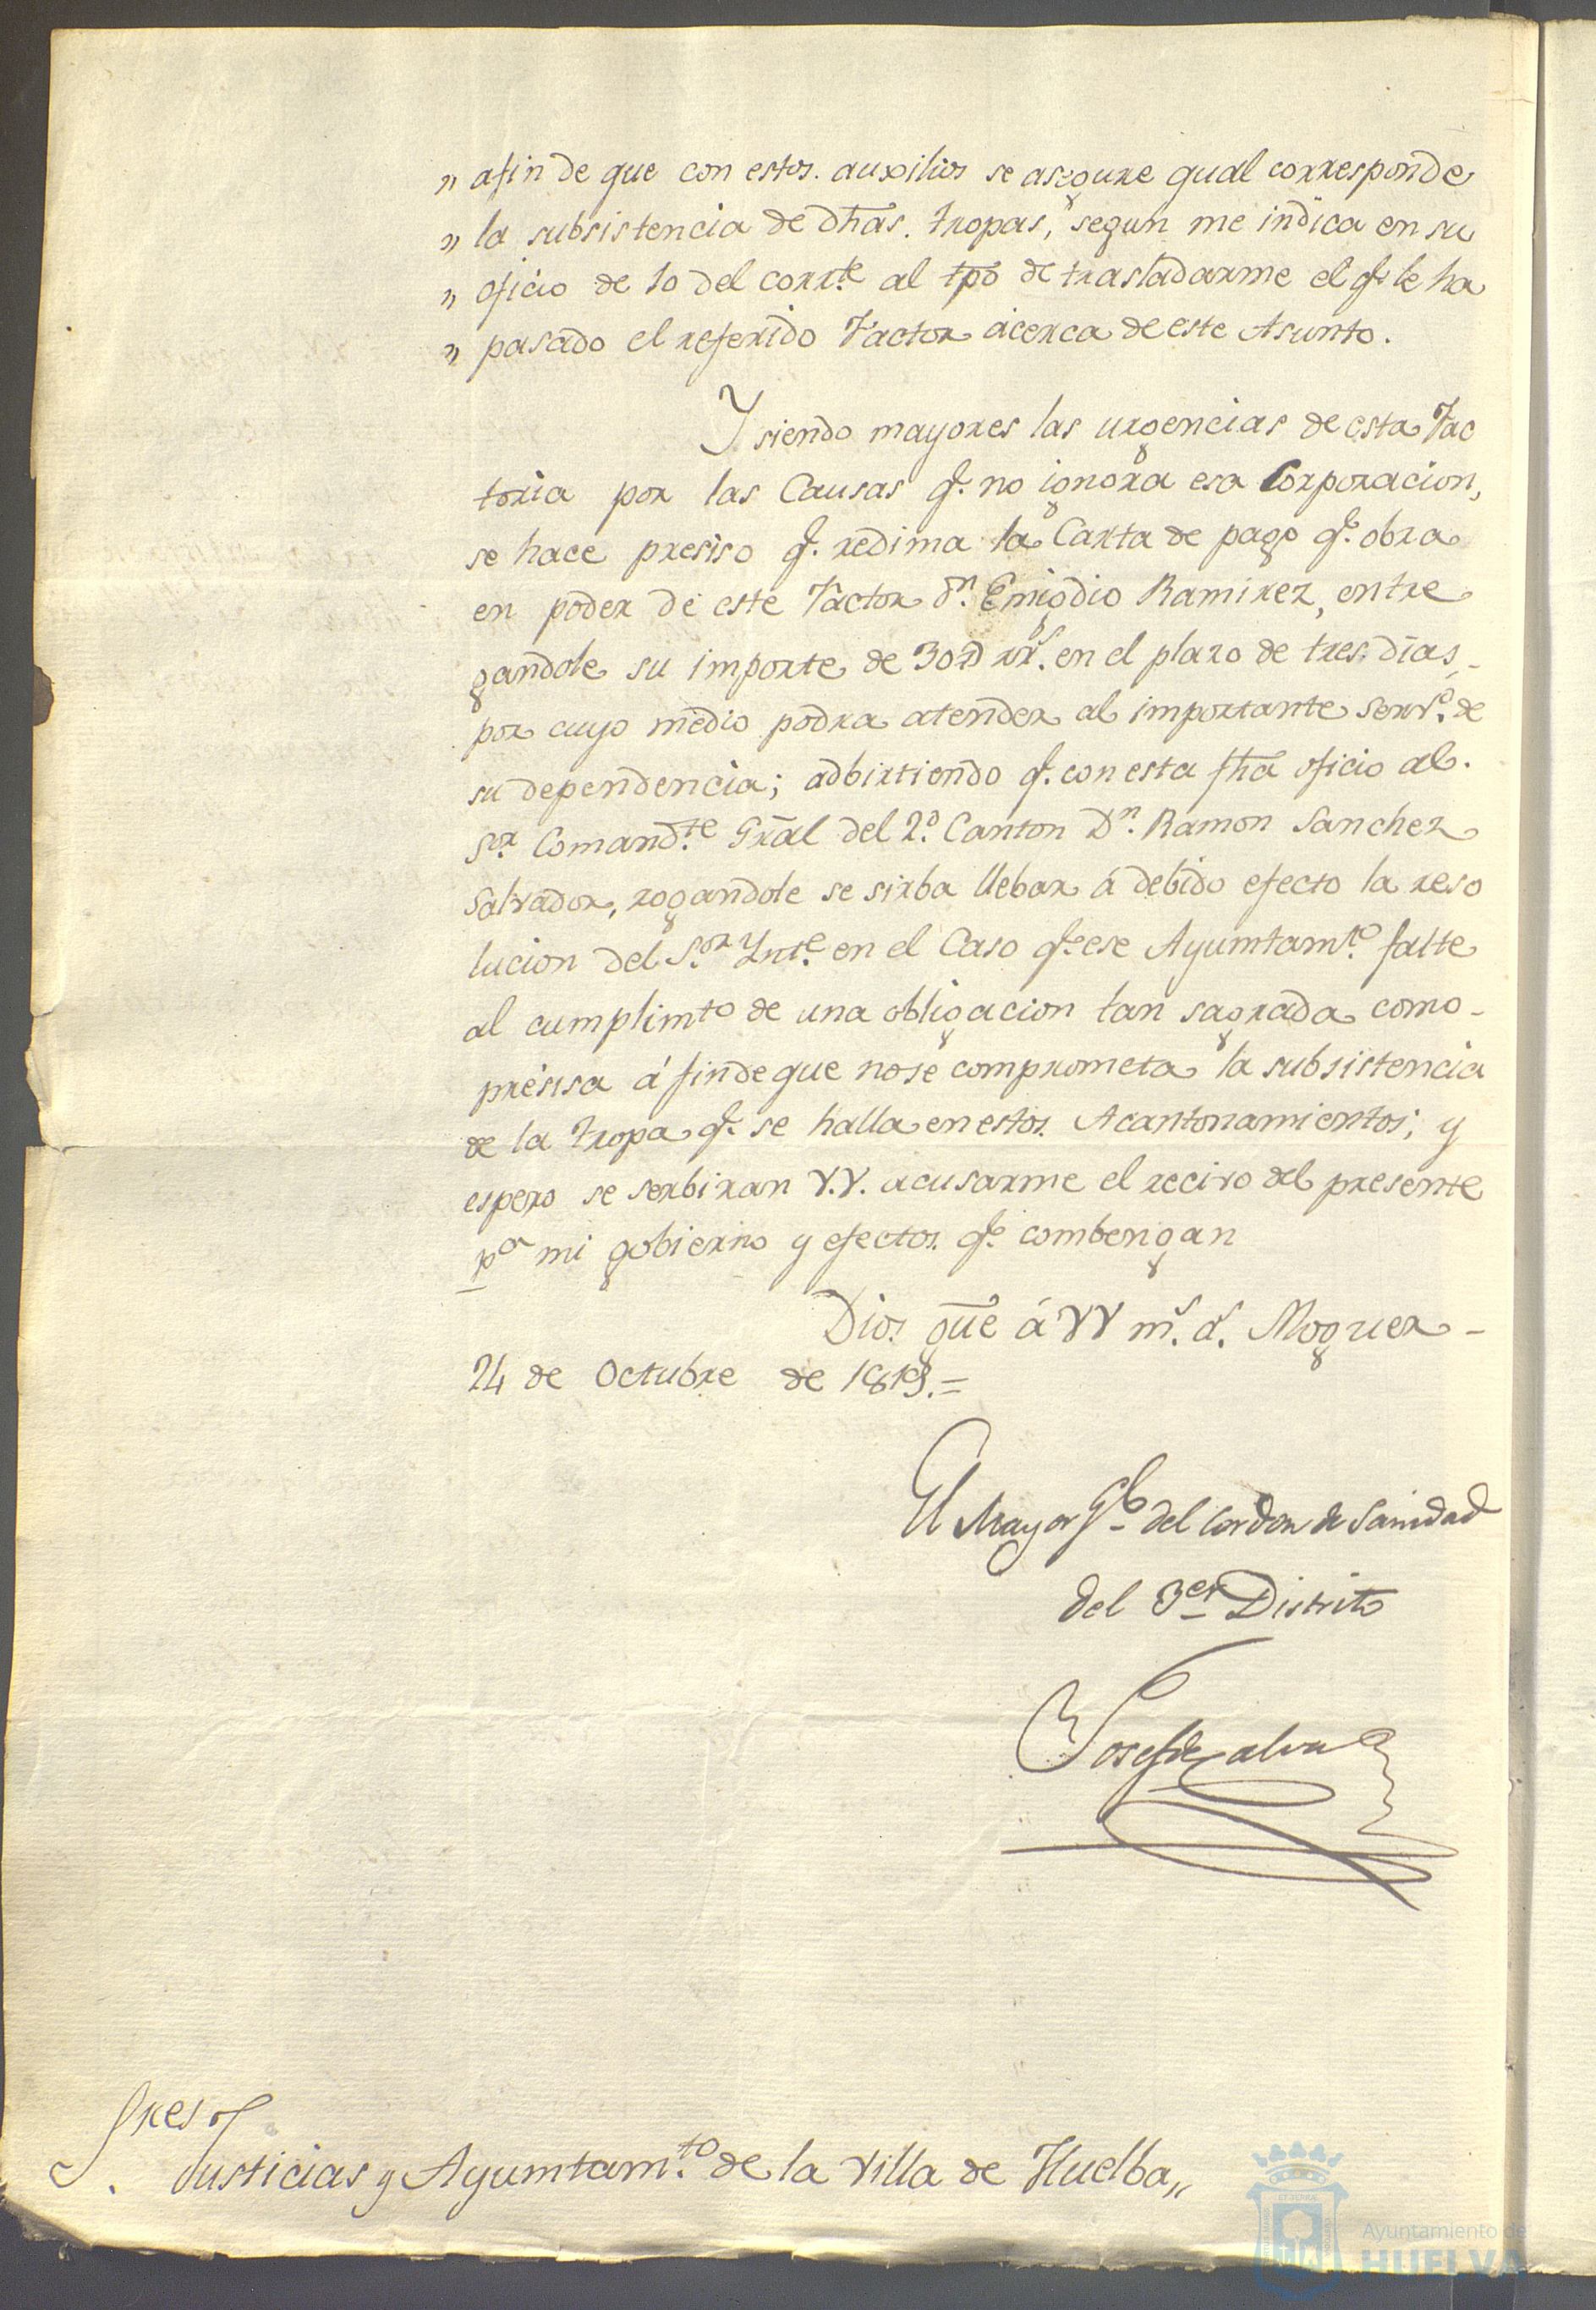 " afin de que con estos. auxilios se asegure qual corresponde
" la subsistencia de dhas. tropas, segun me indica en su
" oficio de 10 del corrte. al tpo de trasladarme el qe. le ha
" pasado el referido Factor acerca de este Asunto.
Y siendo mayores las urgencias de esta Fac
toria por las Causas q. no ignora esa Corporacion,
se hace presiso q. redima la Carta de pago qe. obra
en poder de este Factor dn. Emigdio Ramirez, entre
gandole su importe de 30D rrs. en el plazo de tres dias,
por cuyo medio podra atender al importante servo. de
su dependencia; adbirtiendo q. con esta fha oficio al.
Sor. Comandte. Gral del 2o. Canton Dn. Ramon Sanchez
Salvador, rogandole se sirba llebar á debido efecto la reso
lucion del Sor. Ynte. en el Caso qe. ese Ayumtamto. falte
al cumplimto de una obligacion tan sagrada como-
presisa á fin de que no se comprometa la subsistencia
de la tropa q. se halla en estos. Acantonamientos; y
espero se serbiran V.V. acusarme el recivo del presente
pa mi gobierno y efectos. qe. combengan
Dios. gue á VV ms. as. Moguer-
24 de Octubre de 1819.=
El Mayor Gl. del Cordon de Sanidad
del 3er Distrito
Josef de Alva
Sres
Justicias y Ayumtamto. de la Villa de Huelba,,
Ayuntamiento de
HUELVA